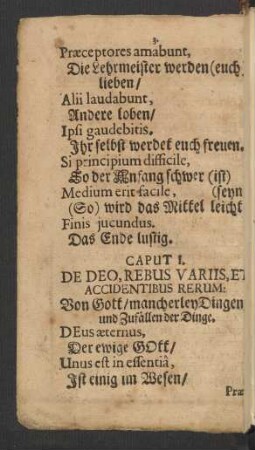 Præceptores amabunt,
Die Lehrmeister werden (euch
lieben/
Alii laudabunt,
Andere loben/
Ipsi gaudebitis.
Ihr selbst werdet euch freuen.
Si principium difficile,
So der Anfang schwer (ist)
Medium erit facile, (seyn
(So) wird das Mittel leicht
Finis jucundus.
Das Ende lustig.
CAPUT I.
DE DEO, REBUS VARIIS, ET
ACCIDENTIBUS RERUM:
Von Gott/ mancherley Dingen
und Zufällen der Dinge.
DEus æternus,
Der ewige GOtt/
Unus est in essentiâ,
Ist einig im Wesen/
Præ